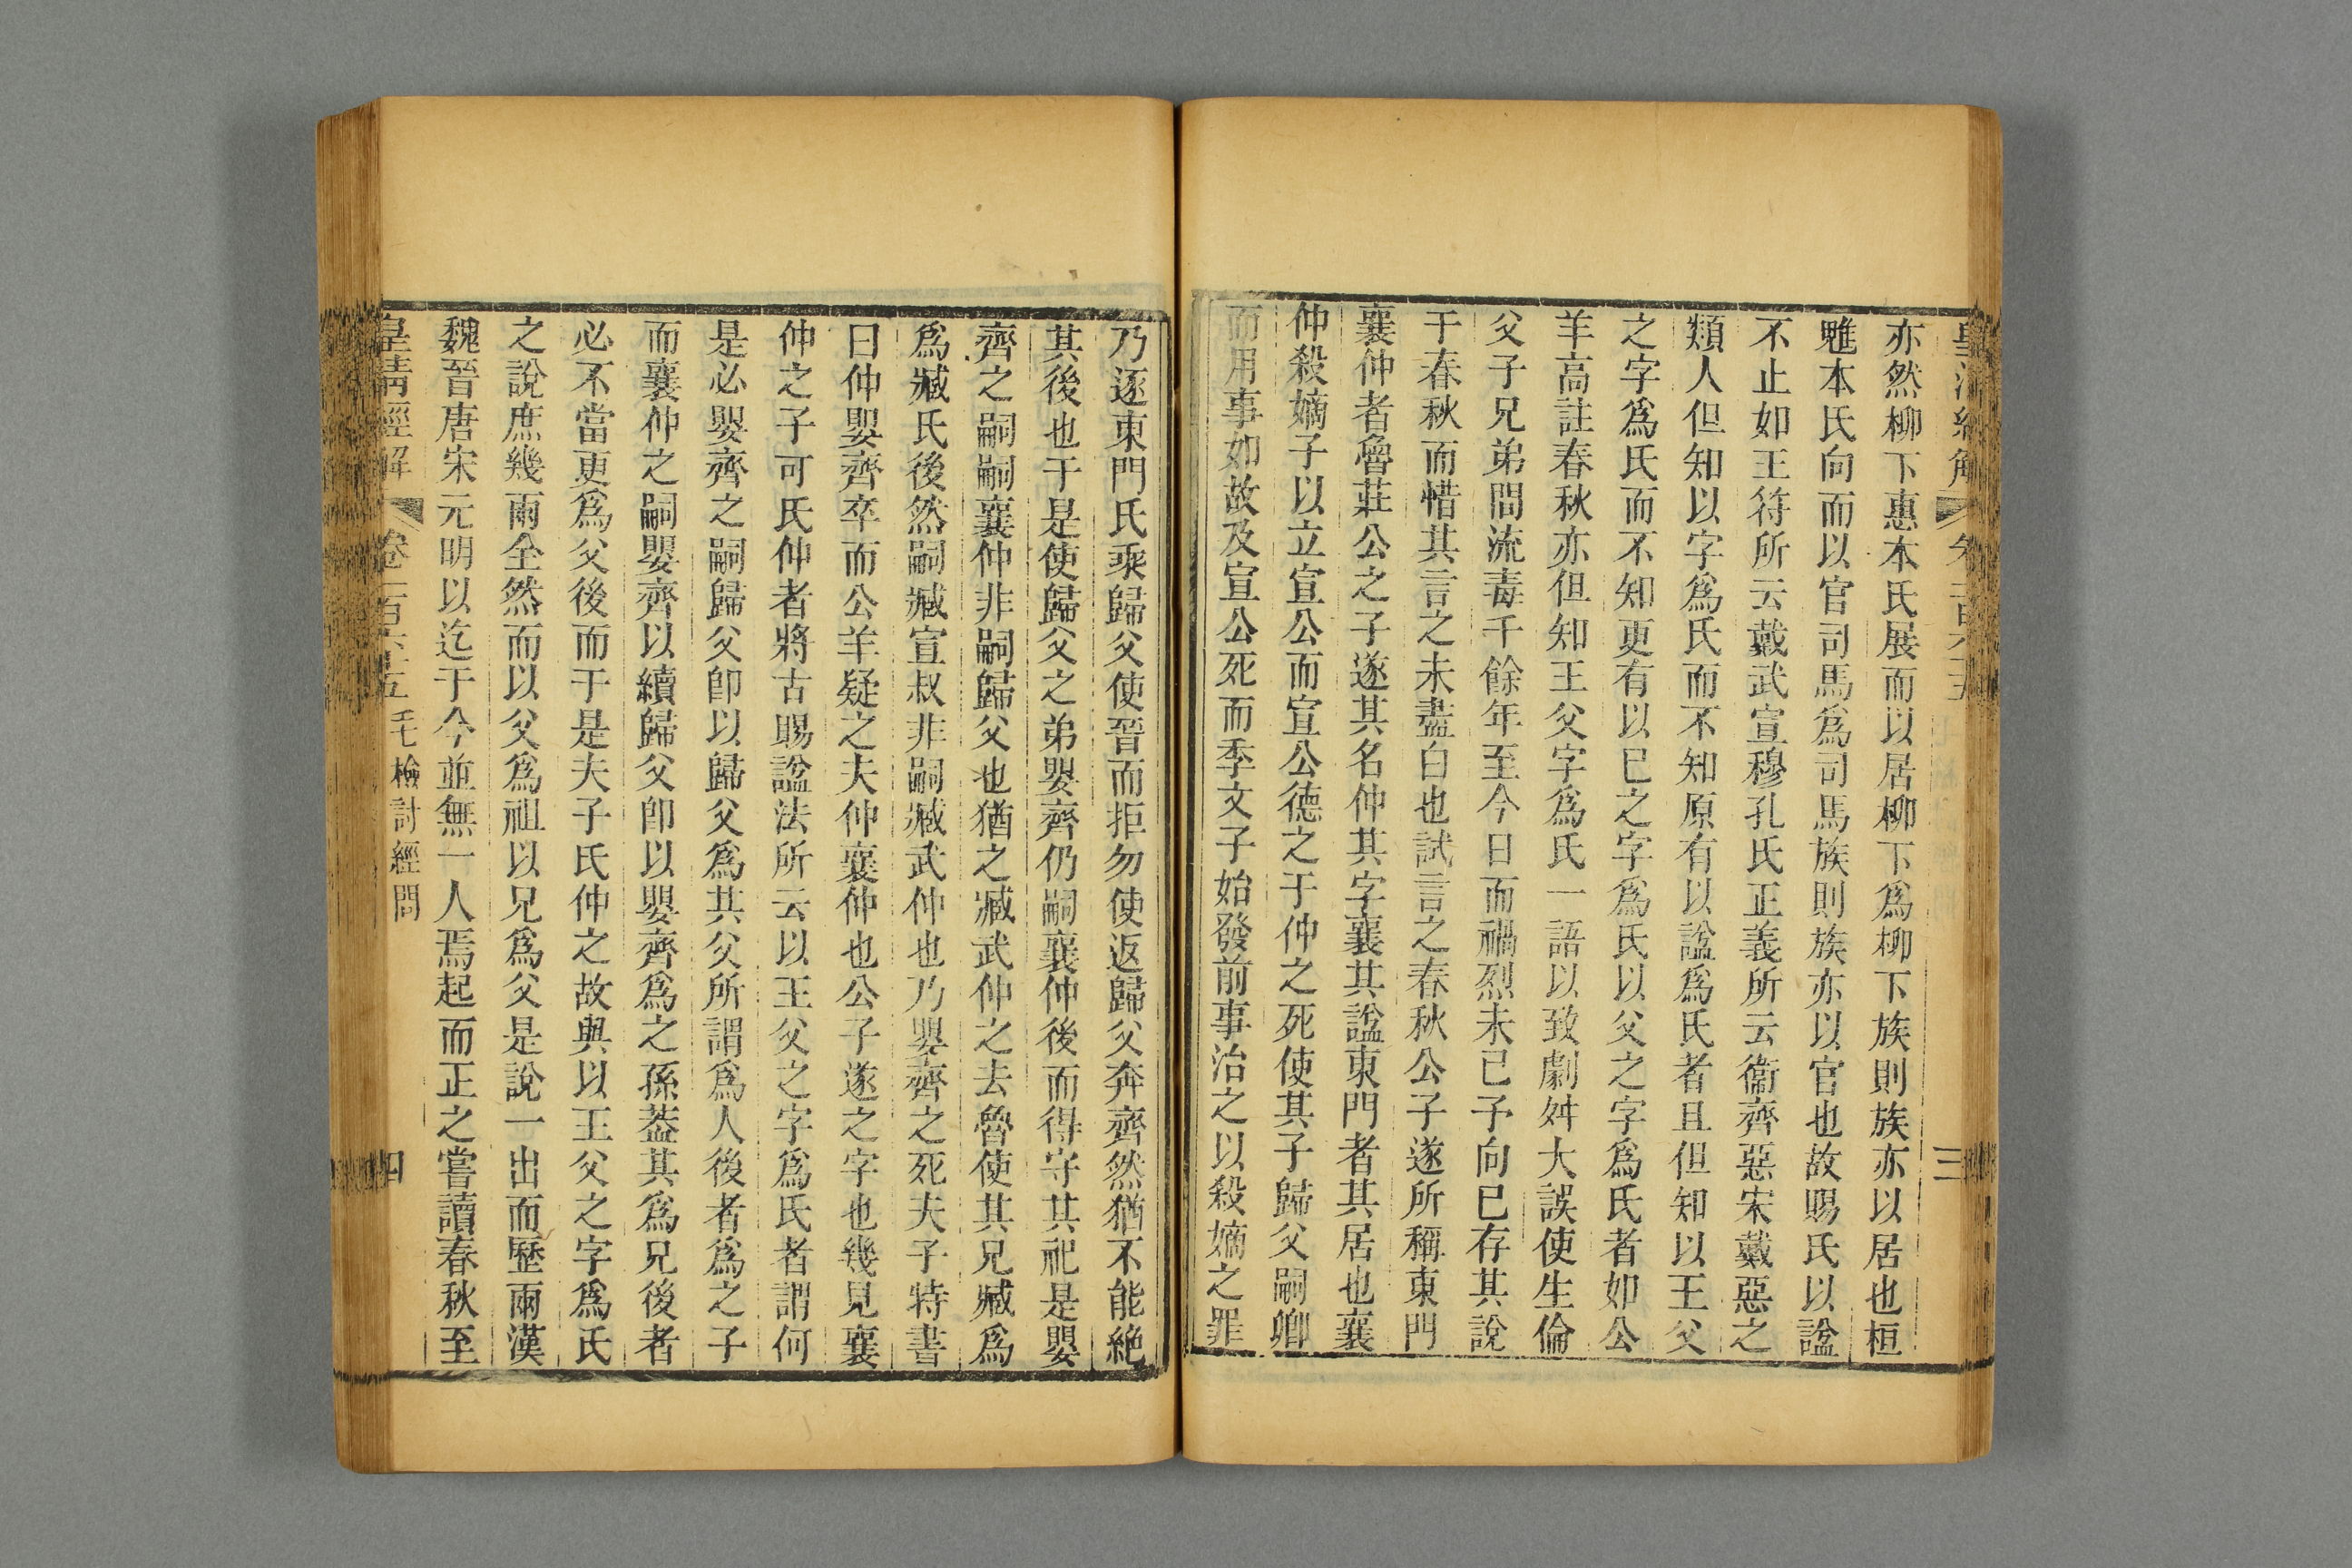 亦然柳下惠本氏展而以居柳下爲柳下族則族亦以居也桓
魋本氏向而以官司馬爲司馬族則族亦以官也故賜氏以諡
不止如王符所云戴武宣穆孔氏正義所云衞齊惡宋戴惡之
類人但知以字爲氏而不知原有以諡爲氏者且但知以王父
之字爲氏而不知更有以巳之字爲氏以父之字爲氏者如公
羊高註春秋亦但知王父字爲氏一語以致劇舛大誤使生倫
父子兄弟間流毒千餘年至今日而禍烈未已予向已存其說
于春秋而惜其言之未盡白也試言之春秋公子遂所稱東門
襄仲者魯莊公之子遂其名仲其字襄其諡東門者其居也襄
仲殺嫡子以立宣公而宣公德之于仲之死使其子歸父嗣卿
而用事如故及宣公死而季文子始發前事治之以殺嫡之罪
乃逐東門氏乘歸父使晉而拒勿使返歸父奔齊然猶不能絶
其後也于是使歸父之弟嬰齊仍嗣襄仲後而得守其祀是嬰
齊之嗣嗣襄仲非嗣歸父也猶之臧武仲之去魯使其兄臧爲
爲臧氏後然嗣臧宣叔非嗣臧武仲也乃嬰齊之死夫子特書
曰仲嬰齊卒而公羊疑之夫仲襄仲也公子遂之字也幾見襄
仲之子可氏仲者將古賜諡法所云以王父之字爲氏者謂何
是必嬰齊之嗣歸父卽以歸父爲其父所謂爲人後者爲之子
而襄仲之嗣嬰齊以續歸父卽以嬰齊爲之孫葢其爲兄後者
必不當更爲父後而于是夫子氏仲之故與以王父之字爲氏
之說庶幾兩全然而以父爲祖以兄爲父是說一出而歷兩漢
魏晉唐宋元明以迄于今並無一人焉起而正之嘗讀春秋至
皇清經解 卷一百六十五 毛檢討經問 四